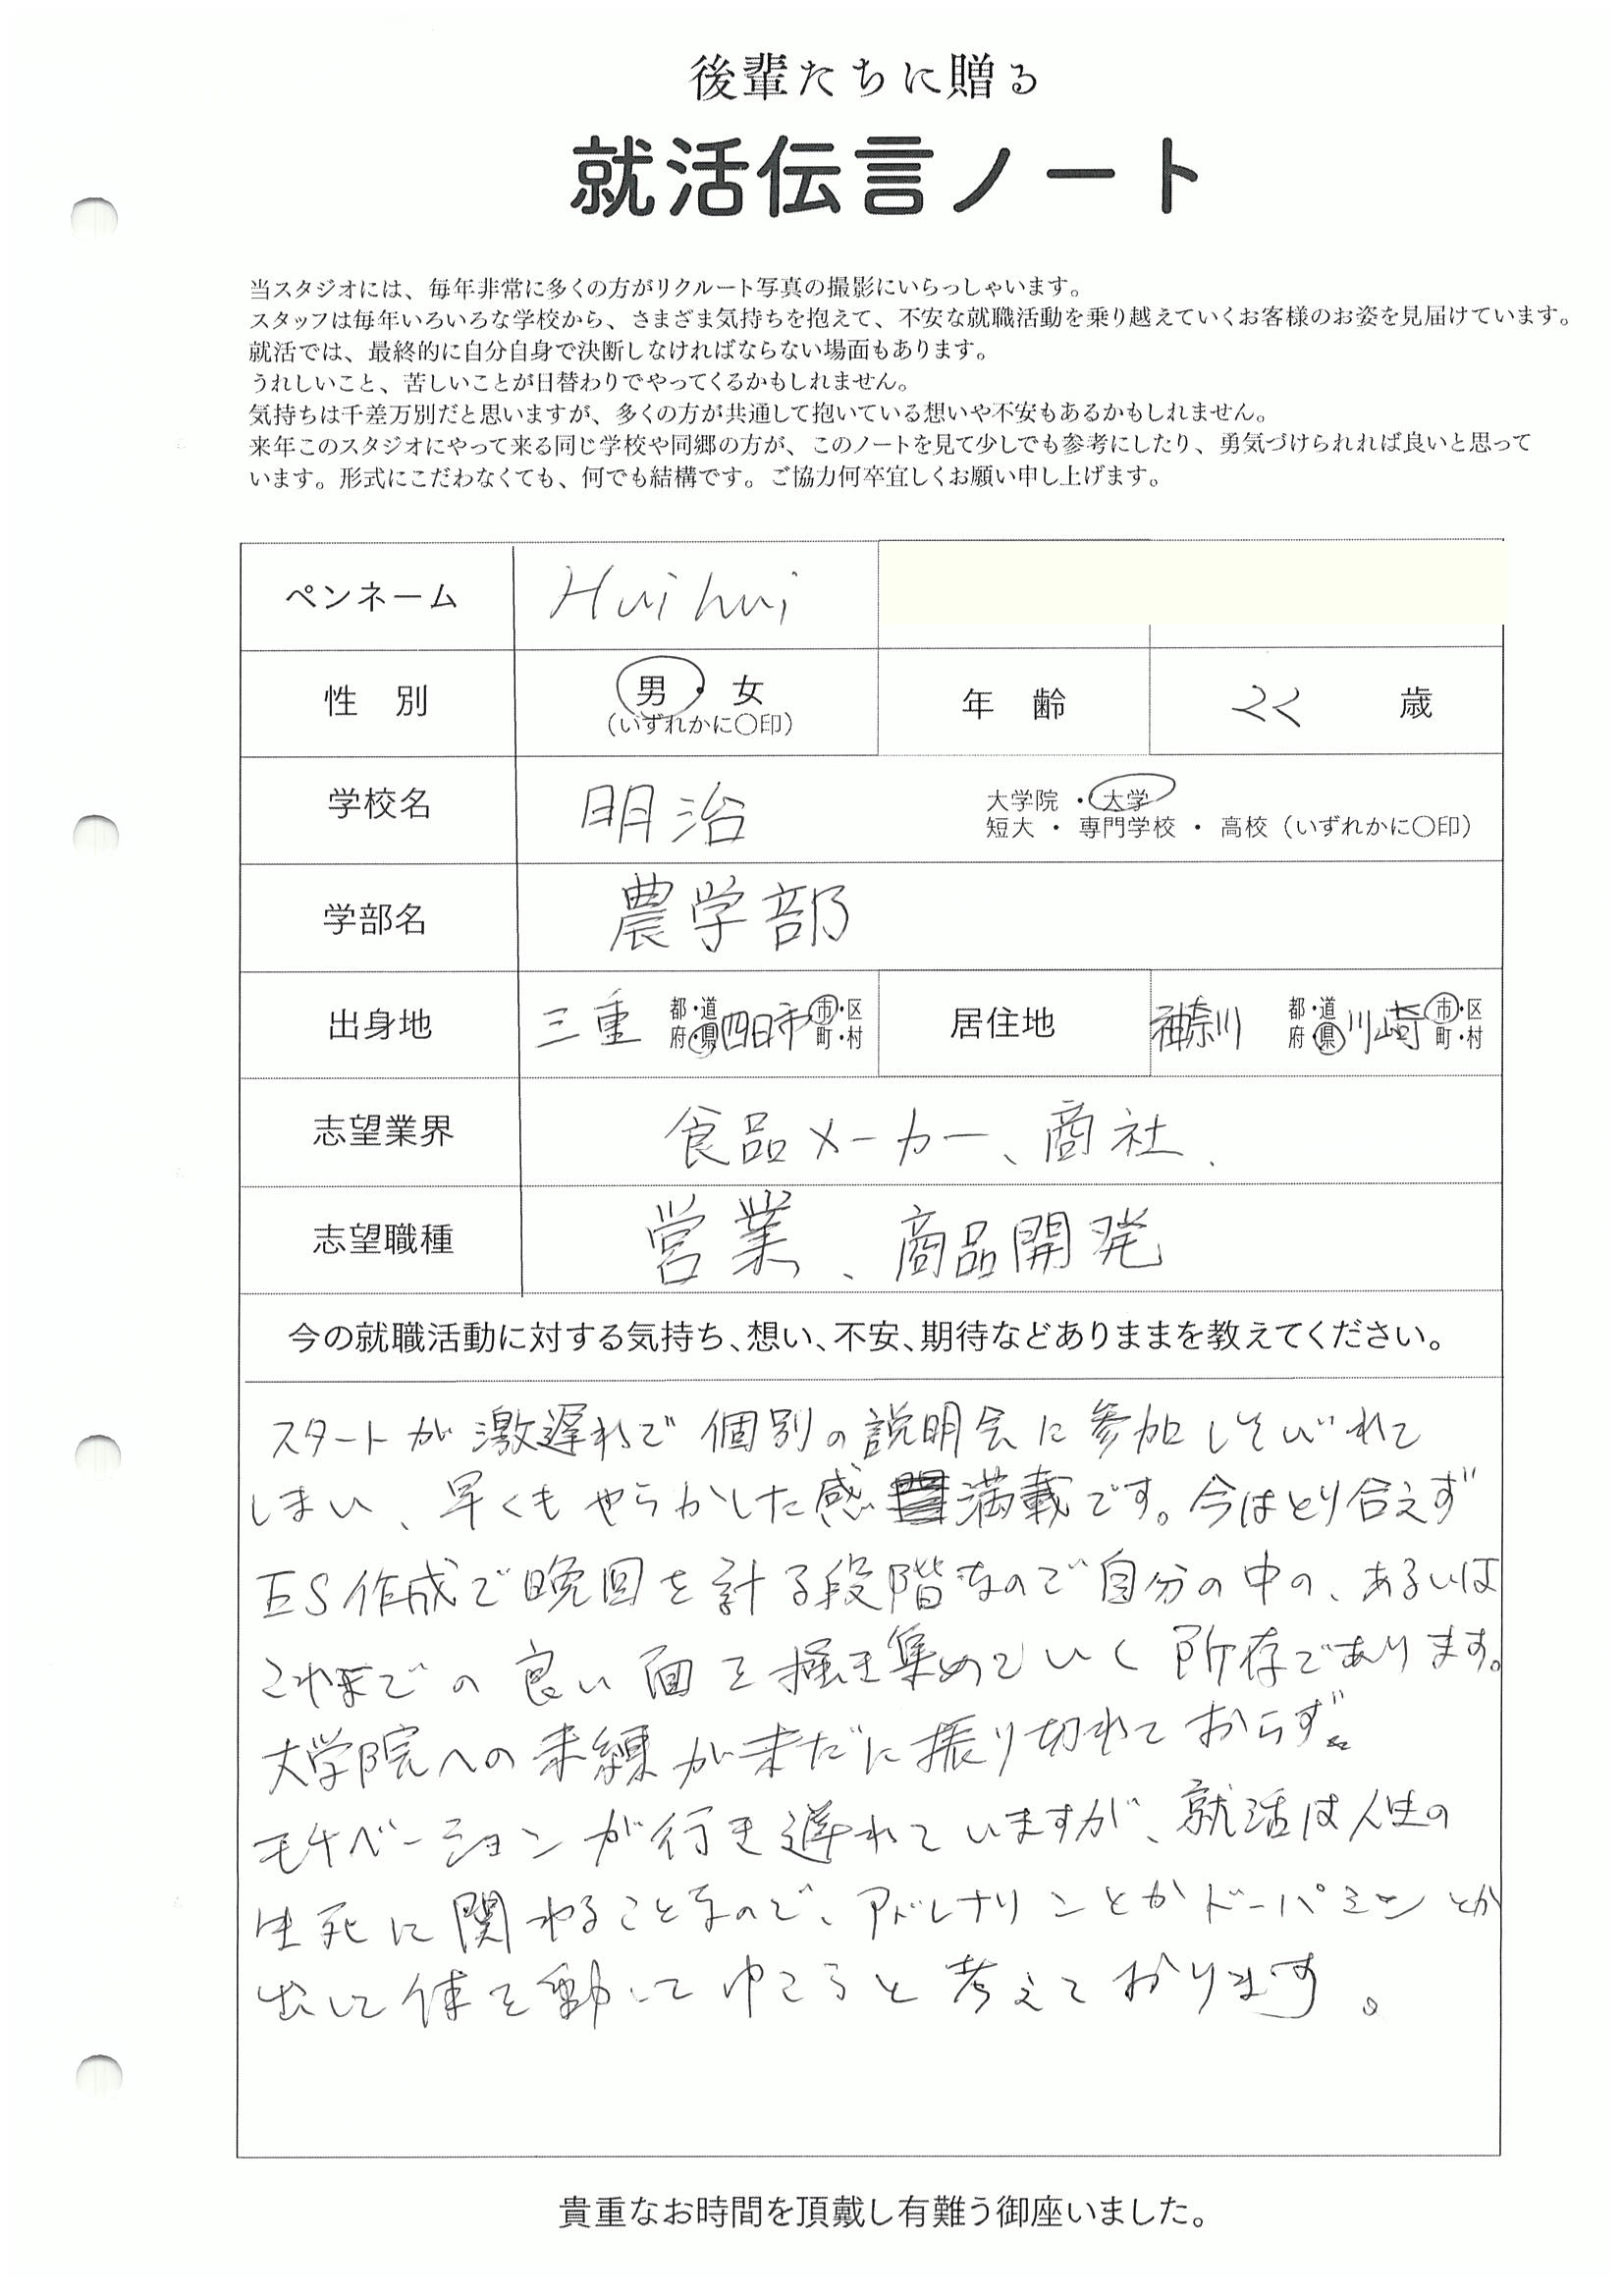 後輩たちに贈る
就活伝言ノート
当スタジオには、毎年非常に多くの方がリクルート写真の撮影にいらっしゃいます。
スタッフは毎年いろいろな学校から、さまざま気持ちを抱えて、不安な就職活動を乗り越えていくお客様のお姿を見届けています。
就活では、最終的に自分自身で決断しなければならない場面もあります。
うれしいこと、苦しいことが日替わりでやってくるかもしれません。
気持ちは千差万別だと思いますが、多くの方が共通して抱いている想いや不安もあるかもしれません。
来年このスタジオにやって来る同じ学校や同郷の方が、このノートを見て少しでも参考にしたり、勇気づけられれば良いと思って
います。形式にこだわなくても、何でも結構です。ご協力何卒宜しくお願い申し上げます。
ペンネーム Huihui
性 別 男・女 (いずれかに〇印) 年 齢 22 歳
学校名 明治 大学院 ・ 大学
短大 ・ 専門学校 ・ 高校 (いずれかに〇印)
学部名 農学部
出身地 三重 都・道府・県 四日市 市・区町・村 居住地 神奈川 都・道府・県 川崎 市・区町・村
志望業界 食品メーカー、商社、
志望職種 営業、商品開発
今の就職活動に対する気持ち、想い、不安、期待などありままを教えてください。
スタートが激遅れで個別の説明会に参加しそびれて
しまい、早くもやらかした感満載です。今はとり合えず
ES作成で晩回を計る段階なので自分の中の、あるいは
これまでの良い面を掻き集めていく所存であります。
大学院への未練が未だに振り切れておらず
モチベーションが行き遅れていますが、就活は人生の
生死に関わることなので、アドレナリンとかドーパミンとか
出して体を動してゆこうと考えております。
貴重なお時間を頂戴し有難う御座いました。